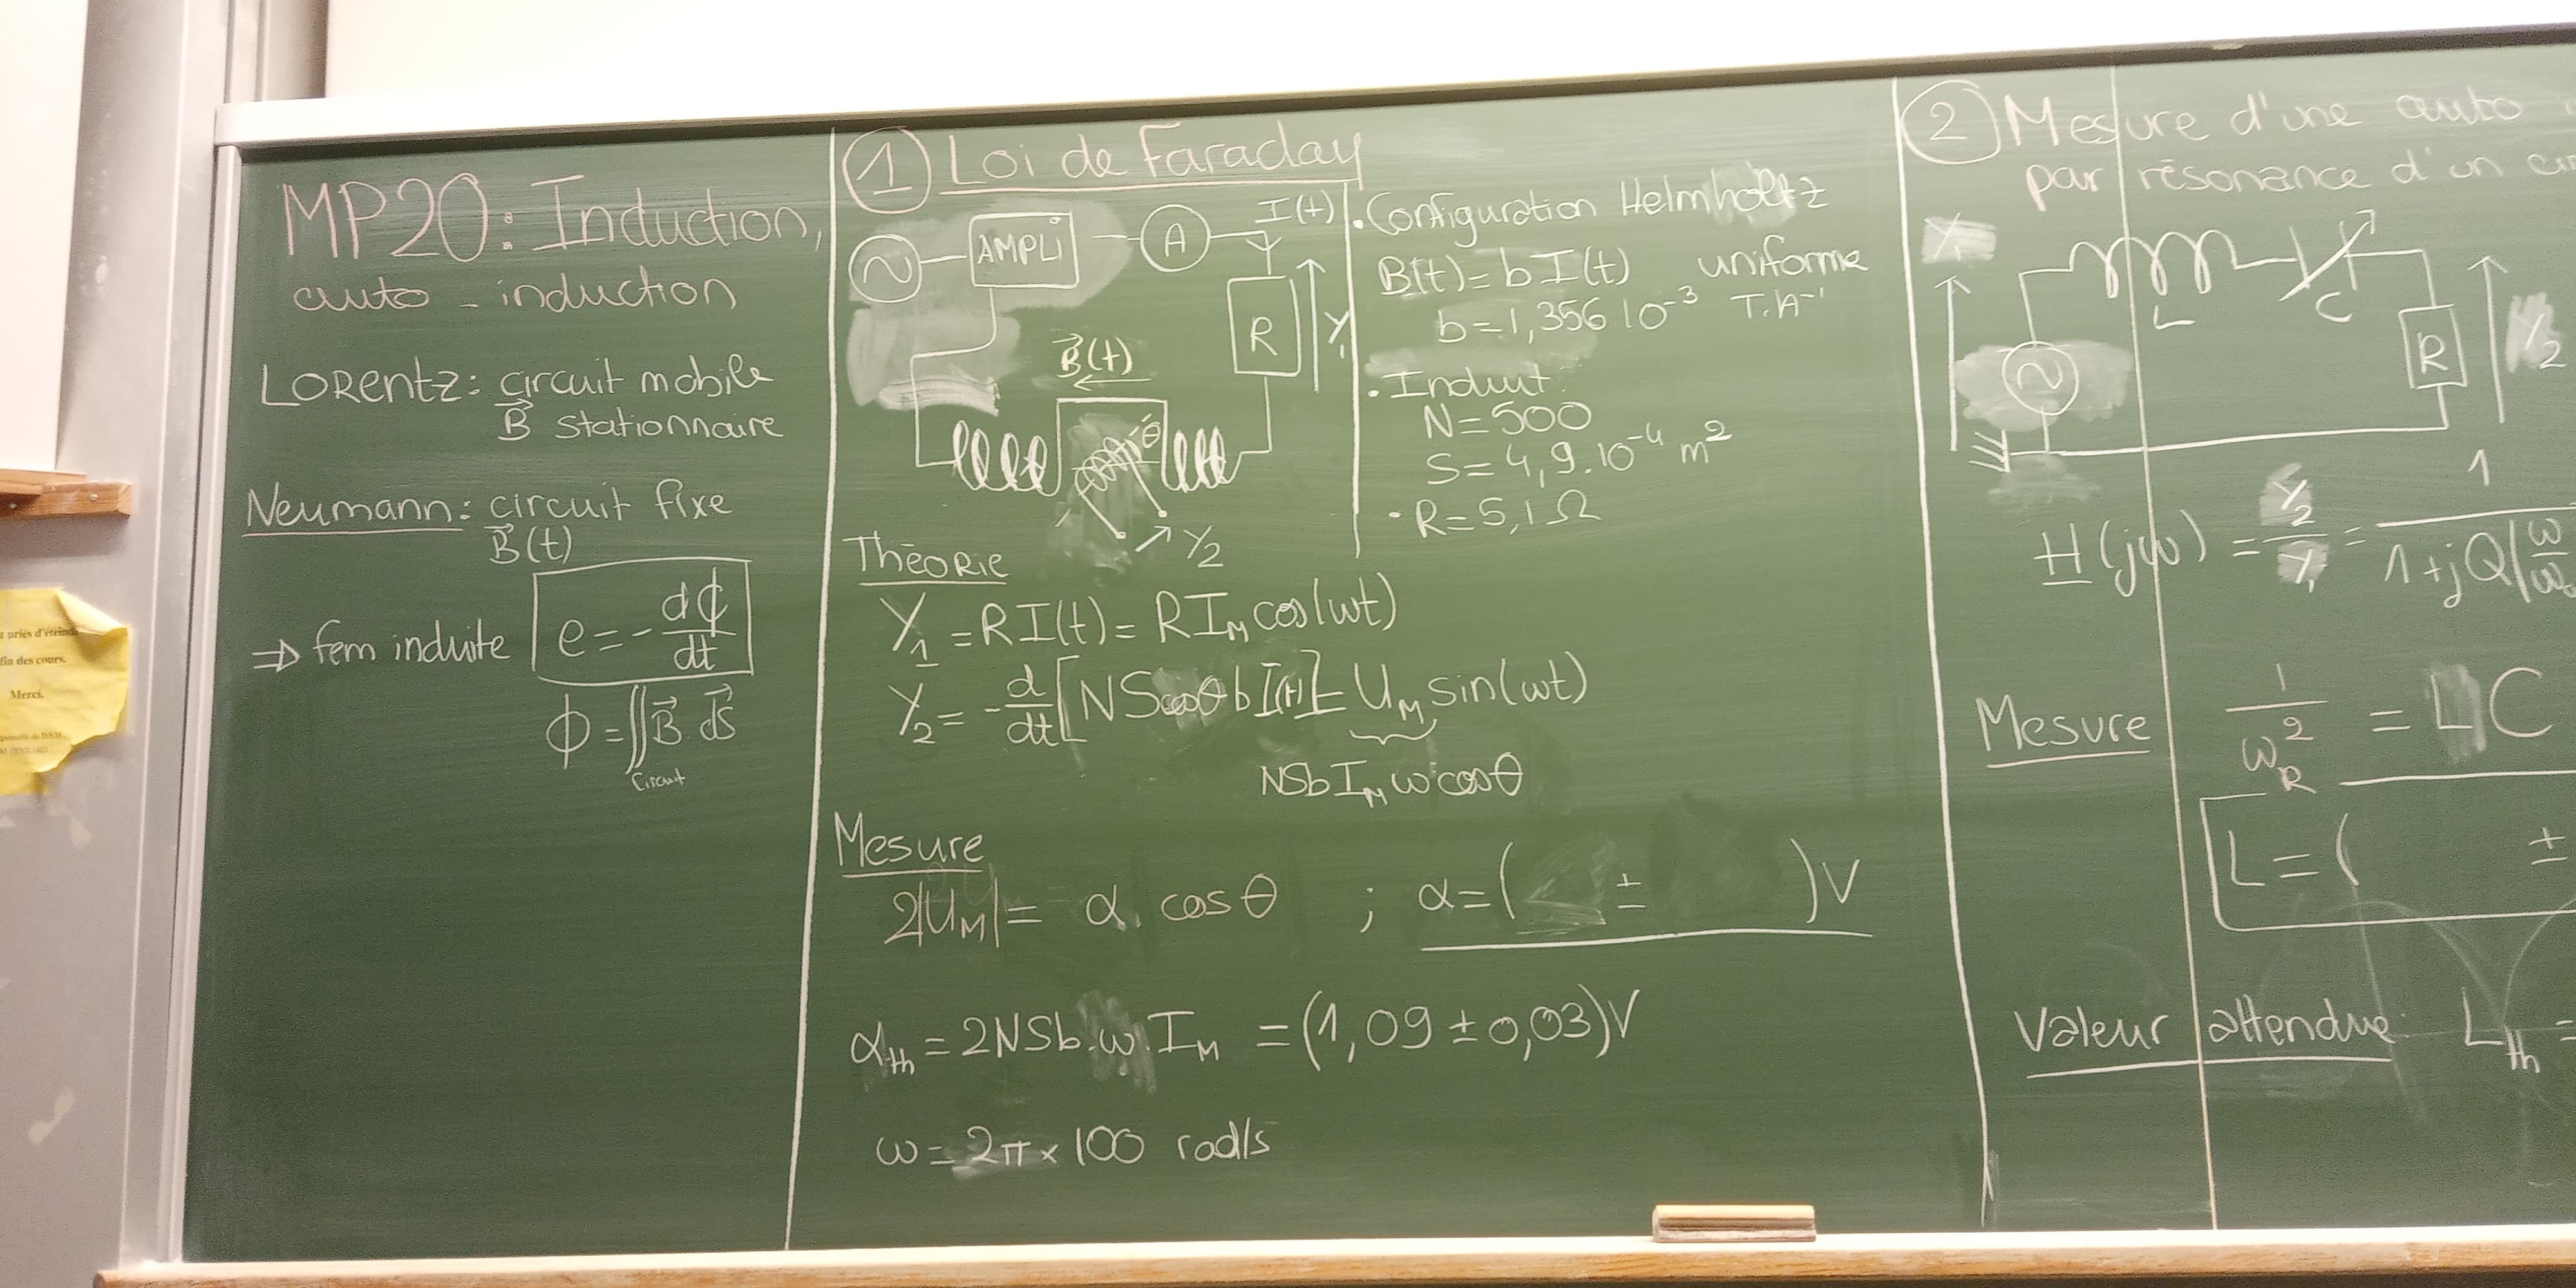 MP20: Induction,
auto - induction
LORentz: circuit mobile
B⃗ stationnaire
Neumann: circuit fixe
B⃗(t)
⇒ fem induite e = - dϕ/dt
ϕ = ∬ B⃗. dS⃗
Circuit
① Loi de Faraday
AMPLI
A
I(t)
R
Y₁
B⃗(t)
θ
Y₂
. Configuration Helmholtz
B(t) = b I(t) uniforme
b = 1,356 10⁻³ T.A⁻¹
. Induit:
N = 500
S = 4,9.10⁻⁴ m²
. R = 5,1 Ω
Théorie
Y₁ = RI(t) = R I_M cos(ωt)
Y₂ = - d/dt [NS cosθ b I(t)] = U_M sin(ωt)
NSb I_M ω cosθ
Mesure
2|U_M| = α. cos θ ; α = ( ± ) V
α_th = 2NSb.ω.I_M = (1,09 ± 0,03) V
ω = 2π × 100 rad/s
② Mesure d'une auto
par résonance d'un
Y₁
L
C
R
Y₂
H(jω) = Y₂/Y₁ = 1/1+jQ(ω/ω₀
Mesure 1/ω_R² = LC
L = ( ±
Valeur attendue L_th =
t priés d'éteind
fin des cours.
Merci.